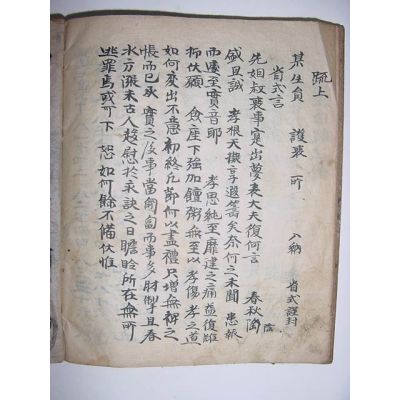 疏上
某生員 護喪所 入納 省式謹封
省式言
先妣叔喪事寔出夢表大夫復何言 春秋隆
盛且誠 孝根天擬享遐籌矣奈何之未聞 患報
而遽至實音耶 孝思純至靡逮之痛益復難
抑伏願 侌座下強加饘粥無至以孝傷孝之道
如何變出不意初終凡節何以盡禮只增無褌之
帳而已承 實之後事當匍匐而事多肘掣且春
水方漲未古人趍慰於永訣之日瞻昤所在無所
逃罪焉或可下 恕如何餘不備伏惟